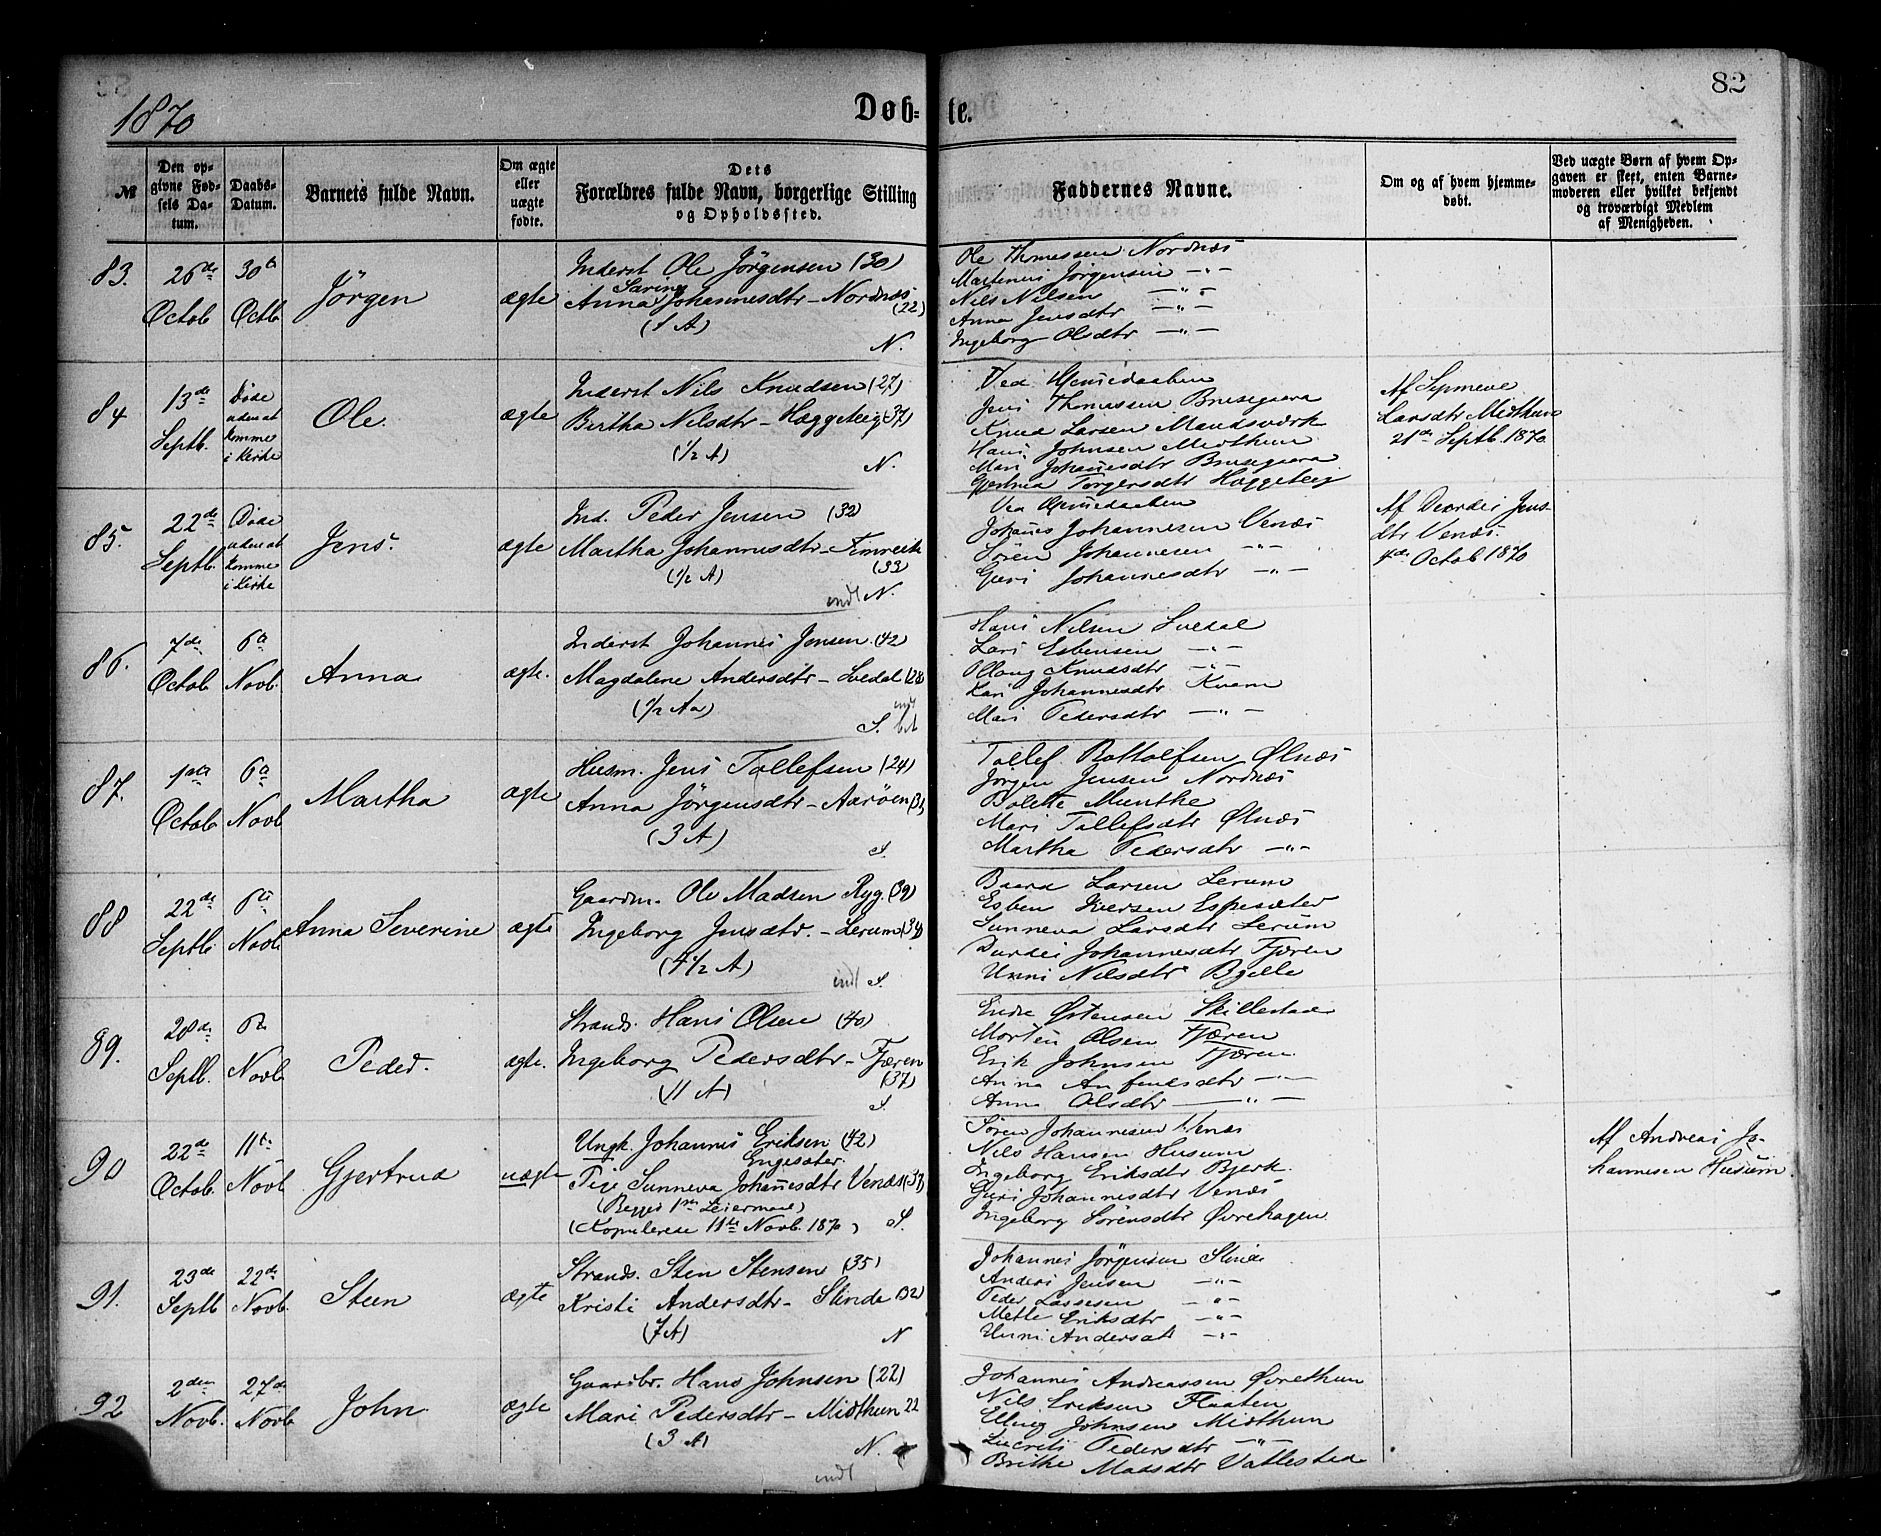 82
1870
Døb-
te.
№
Den op-
givne Fød-
sels Da-
tum.
Daabs-
Datum.
Barnets fulde Navn.
Om ægte
eller
uægte
fødte.
Dets
Forældres fulde Navn, borgerlige Stilling
og Opholdssted.
Faddernes Navne.
Om og af hvem hjemme-
døbt.
Ved uægte Børn af hvem Op-
gaven er skeet, enten Barne-
moderen eller hvilket bekjendt
og troværdigt Medlem
af Menigheden.
83.
26de
Octob
30te
Octb
Jörgen
ægte
Inderst Ole Jörgensen (30)
Sarine
Anna Johannesdtr - Nordnæs
(22)
(1 A)
N.
Ole Thomassen Nordnæs
Martenus Jörgensen -"-
Nils Nilsen -"-
Anna Jensdtr -"-
Ingeborg Olsdtr -"-
84
13de
Septb.
Döde
uden at
komme
i Kirke
Ole.
ægte
Inderst Nils Knudsen (27)
Bertha Nilsdtr - Hæggeteig (37)
(1/2 A)
N.
Ved Hjemedaaben
Jens Thomassen Brusegaard
Knud Larsen Mundsværk
Hans Johnsen Midthun
Mari Johanesdtr Brusegaard
Gjertrud Torgersdtr Haggeteig
Af
Larsdtr Midthun
21de Septb. 1870
85.
22de
Septb.
Döde
uden at
komme
i Kirke
Jens.
ægte
Ind. Peder Jensen (32)
Martha Johannesdtr - Fimreite
(33)
(1/2 A)
indt N.
Ved Hjemedaaben
Johanes Johannesen Venæs
Sören Johannesen -"-
Guri Johannesdtr -"-
Af Deordei Jens-
dtr Venæs.
4de Octob 1870
86.
7de
Octob
6te
Novb.
Anna
ægte.
Inderst Johannes Jensen (42
Magdalene Andersdtr - Svedal (28)
(1/2 Aa)
indt
S.
Hans Nilsen Svedal
Lars Esbensen -"-
Ollaug Knudsdtr -"-
Kari Johannesdtr Kvam
Mari Pedersdtr -"-
87.
1ste
Octob
6te
Novb
Martha
ægte
Husm. Jens Tollefsen (24)
Anna Jörgensdtr - Aaröen
(3 A)
S.
Tollef Bottolfsen Ølnæs
Jörgen Jensen Nordnæs
Bolette Munthe
Mari Tollefsdtr Ølnæs
Martha Pedersdtr -"-
88
22de
Septb
6te
Novb
Anna Severine
ægte
Gaardm. Ole Madsen Ryg. (39)
Ingeborg Jensdtr. - Lerum (34)
(4 1/2 A)
indt S.
Baard Larsen Lerum
Esben Iversen Espesæter
Sunneva Larsdtr Lerum
Durdei Johannesdtr Fjæren
Unni Nilsdtr Bjelle
89.
28de
Septb.
6te
Novb
Peder.
ægte.
Strands. Hans Olsen (40)
Ingeborg Pedersdtr - Fjæren
(37)
(11 A)
S.
Endre Østensen Skillestad
Morten Olsen Fjæren
Erik Johnsen Fjæren
Anna Anfinsdtr -"-
Anna Olsdtr -"-
90
22de
Octob.
11te
Novb
Gjertrud
uægte
Ungk. Johannes Eriksen (42)
Engesæter.
Pige Sunneva Johanesdtr Venæs (37)
(Begges 1ste Leiermaal)
(Kopulerede 11te Novb. 1870)
S.
Sören Johannesen Venæs
Nils Hansen Husum
Ingeborg Eriksdtr Bjerk.
Guri Johannesdtr Venæs
Ingeborg Sörensdtr Øvrehagen
Af Andreas Jo-
hannesen Husum
91.
23de
Septb
22de
Novb.
Steen
ægte
Strands. Sten Stensen (35)
Kristi Andersdtr - Slinde (32)
(7 A)
N
Johannes Jörgensen Slinde
Anders Jensen -"-
Peder Lassesen -"-
Mette Eriksdtr -"-
Unni Andersdt -"-
92
2den
Novb.
27de
Novb
John
ægte
Gaardbr. Hans Johnsen (22)
Mari Pedersdtr - Midthun 22
(3 A)
N.
indt
Johannes Andreassen Øvrethun
Nils Eriksen Flaaten
Elling Johnsen Midthun
Lucretí Pedersdtr -"-
Brithe Madsdtr Vatlestad